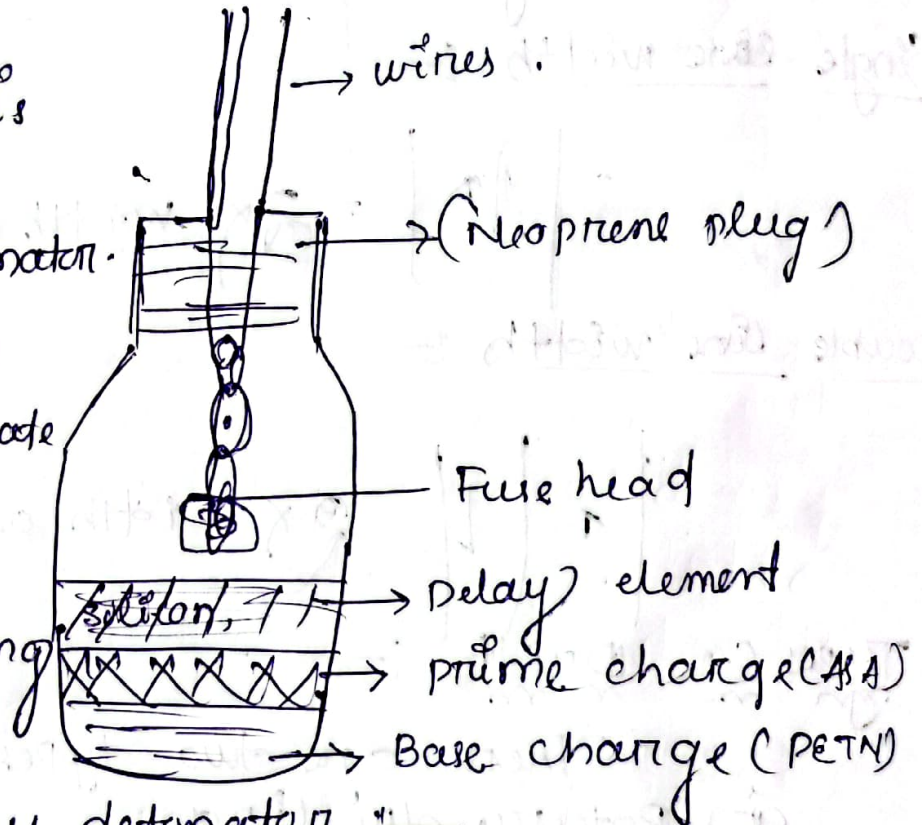 wires.
(Neoprene plug)
Fuse head
Delay element
silicon,
prime charge (ASA)
Base charge (PETN)
detonator